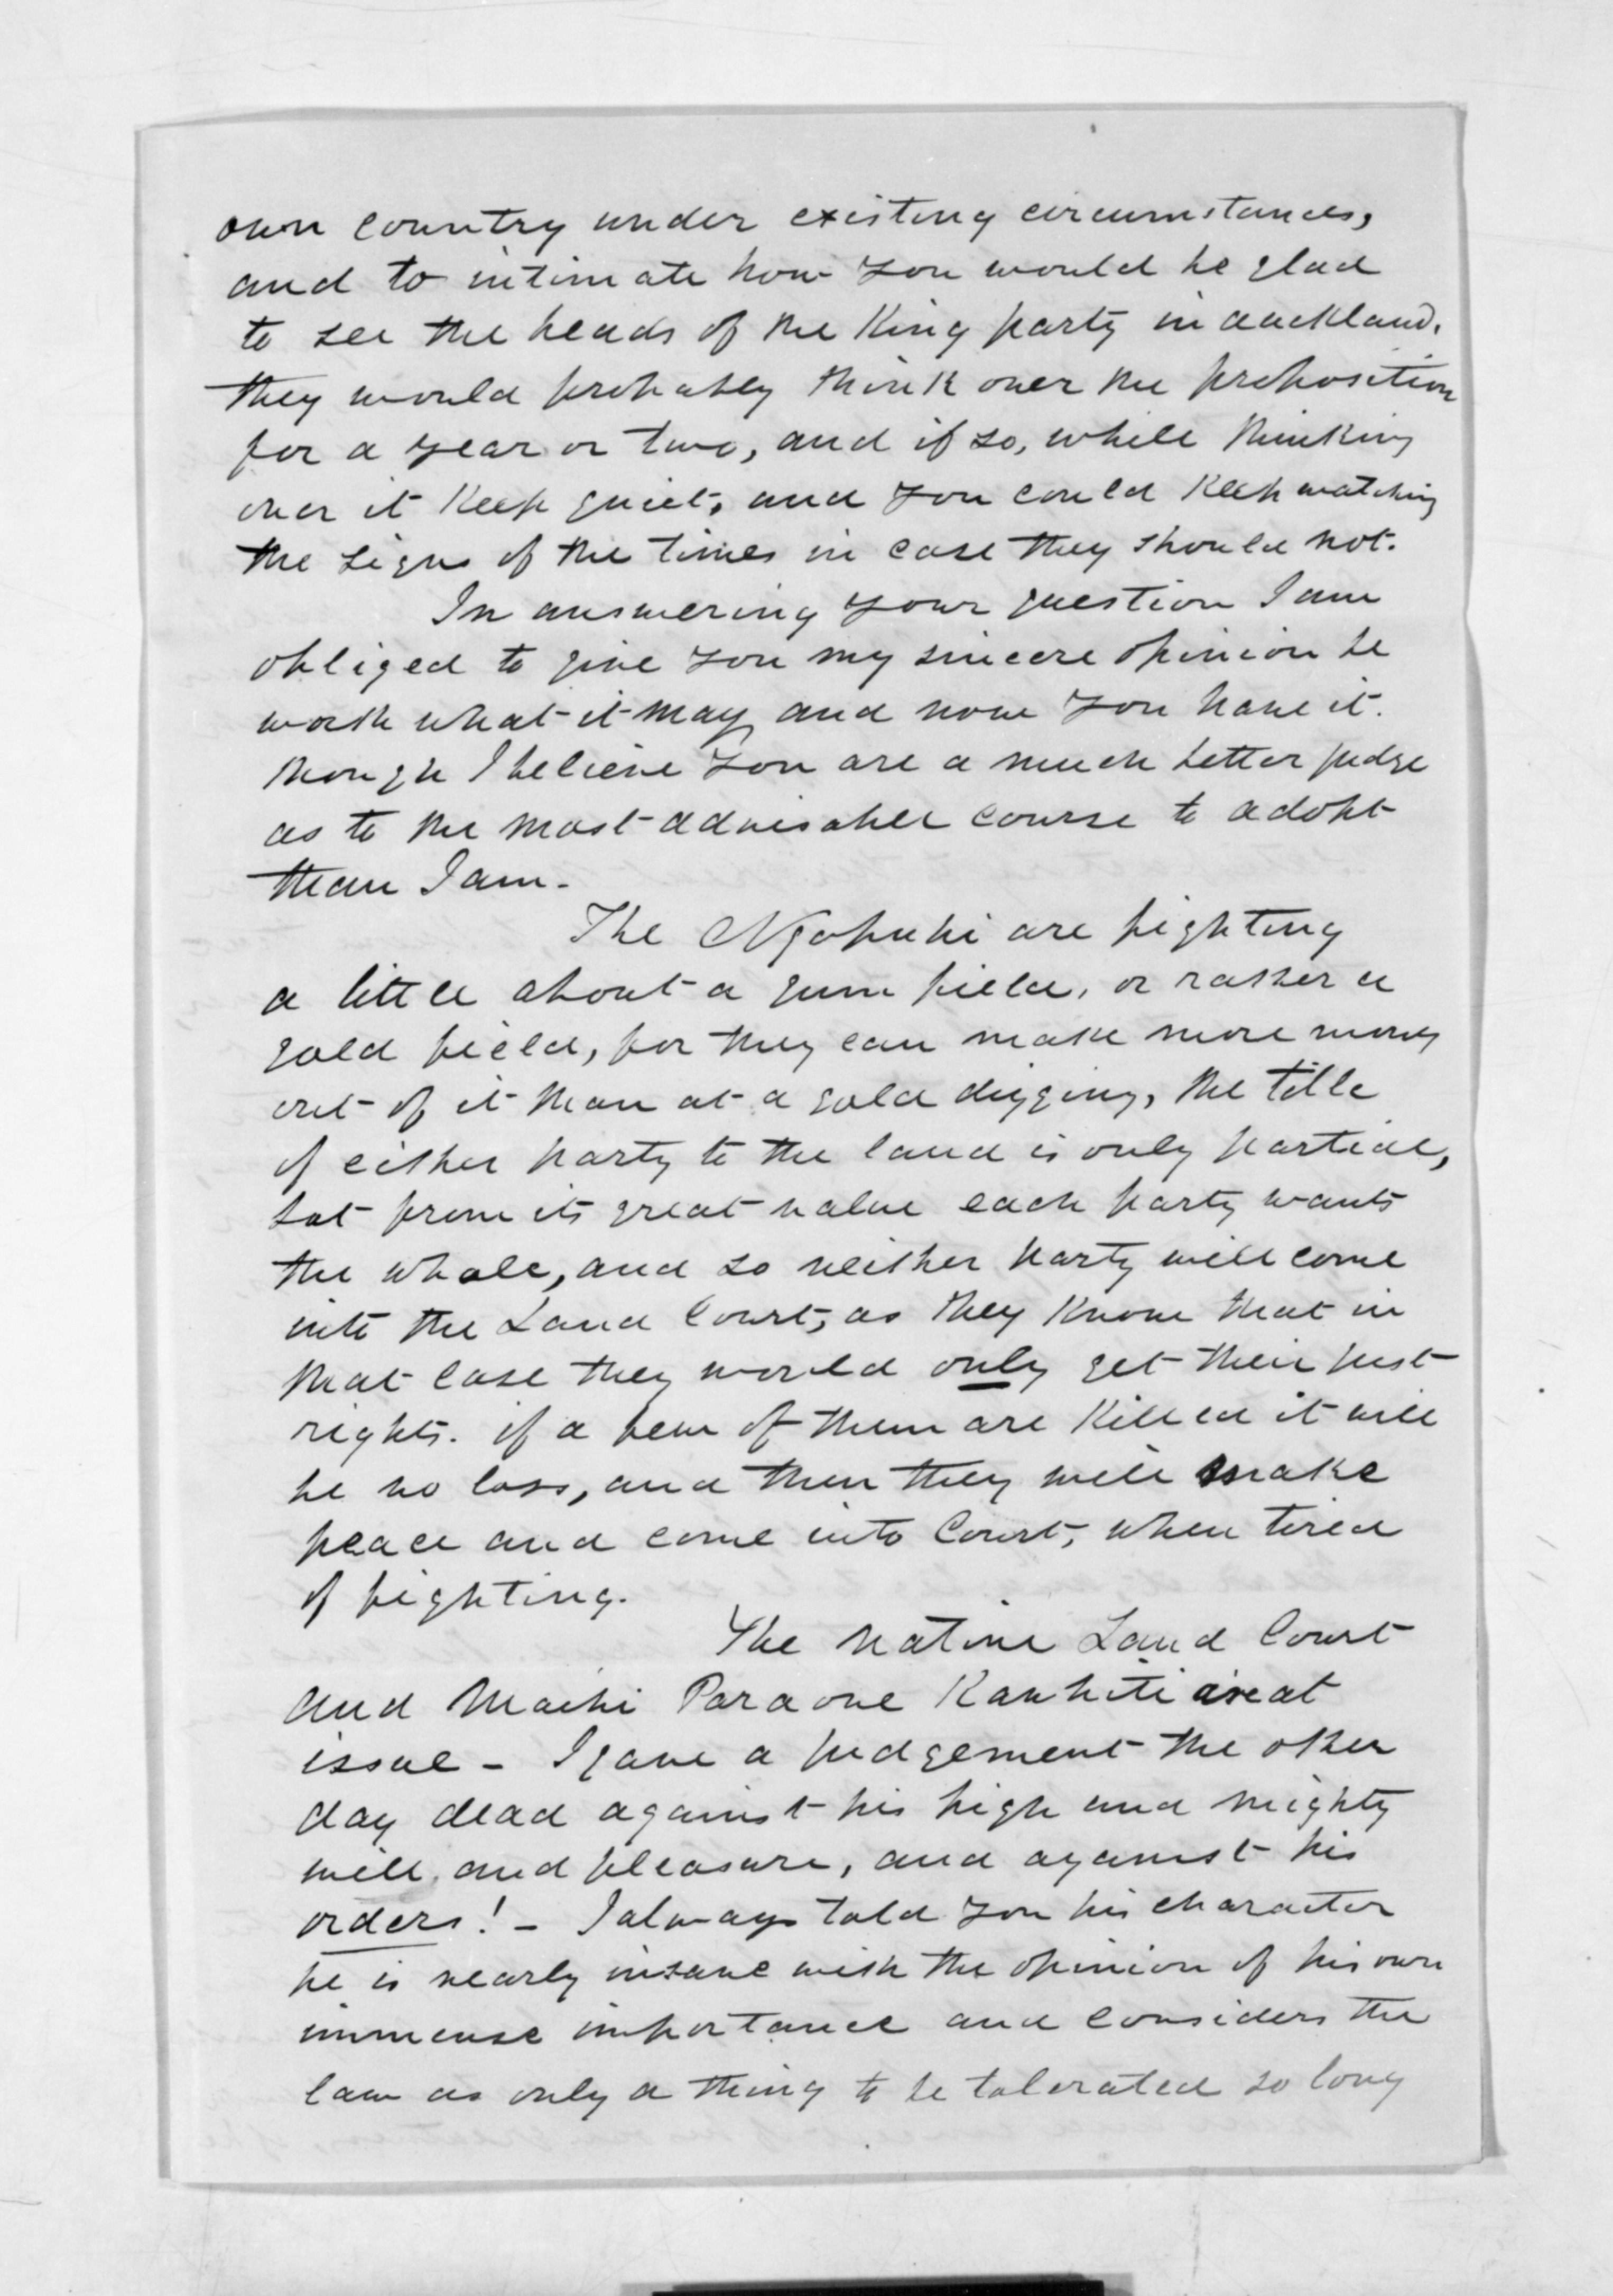 own country under existing circumstances,
and to intimate how you would be glad
to see the heads of the King party in auckland.
they would probably think over the proposition
for a year or two, and if so, while thinking
over it keep quiet, and you could keep watching
the signs of the times in case they should not.
In answering your question I am
obliged to give you my sincere opinion be
worth what it may and now you have it.
though I believe you are a much better judge
as to the most adviseable course to adopt
than I am -
The Ngapuhi are fighting
a little about a gum field, or rather a
gold field, for they can make more money
out of it than at a gold digging, the title
of either party to the land is only partial,
but from its great value each party wants
the whole, and so neither party will come
into the Land Court, as they know that in
that case they would only get their just
rights. if a few of them are killed it will
be no loss, and then they will make
peace and come into Court, when tired
of fighting.
The native Land Court
and Maihi Paraone Kawhiti are at
issue - I gave a judgement the other
day dead against his high and mighty
will and pleasure, and against his
orders! - I always told you his character
he is nearly insane with the opinion of his own
immense importance and considers the
law as only a thing to be tolerated so long